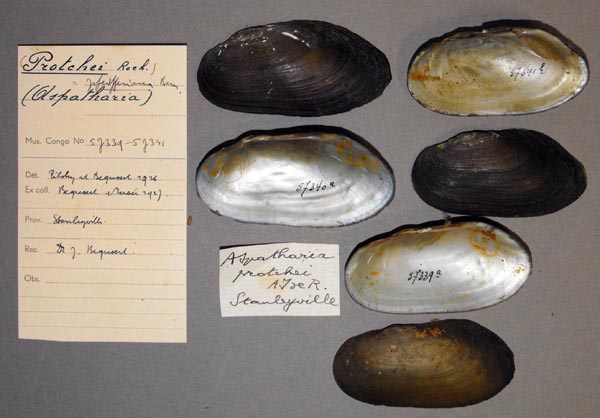 (Protchei Roch.)
= 
(Aspatharia)
Mus. Congo No 57339-57341
Dét. Pilsbry et Bequaert 1926
Ex coll. Bequaert 1927
Prov. Stanleyville
Rec. Dr J. Bequaert
Obs.
57341
57340a
57339a
Aspatharia
protchei
Stanleyville